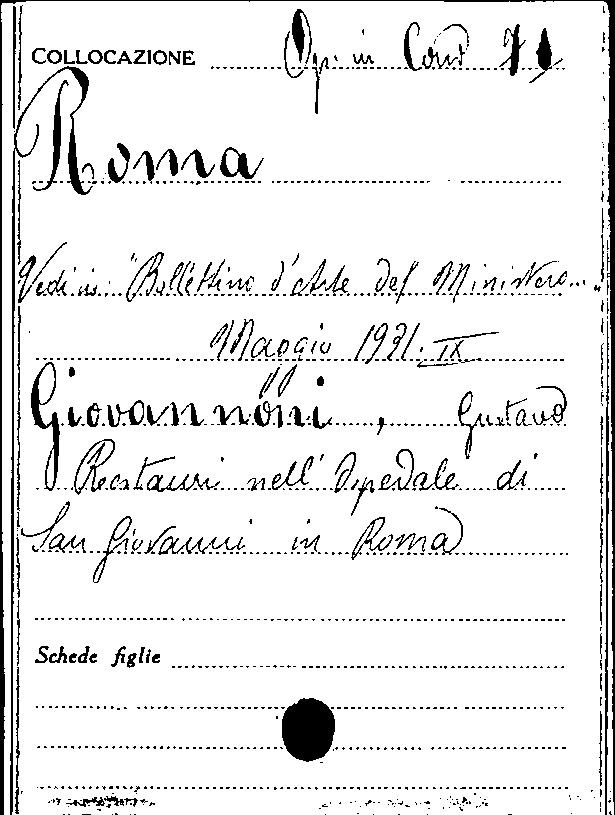 COLLOCAZIONE Op. in Cond 71
Roma
Vedi in: "Bollettino d'Arte del Ministero..."
Maggio 1931. IX
Giovannoni, Gustavo
Restauri nell'Ospedale di
San Giovanni in Roma
Schede figlie